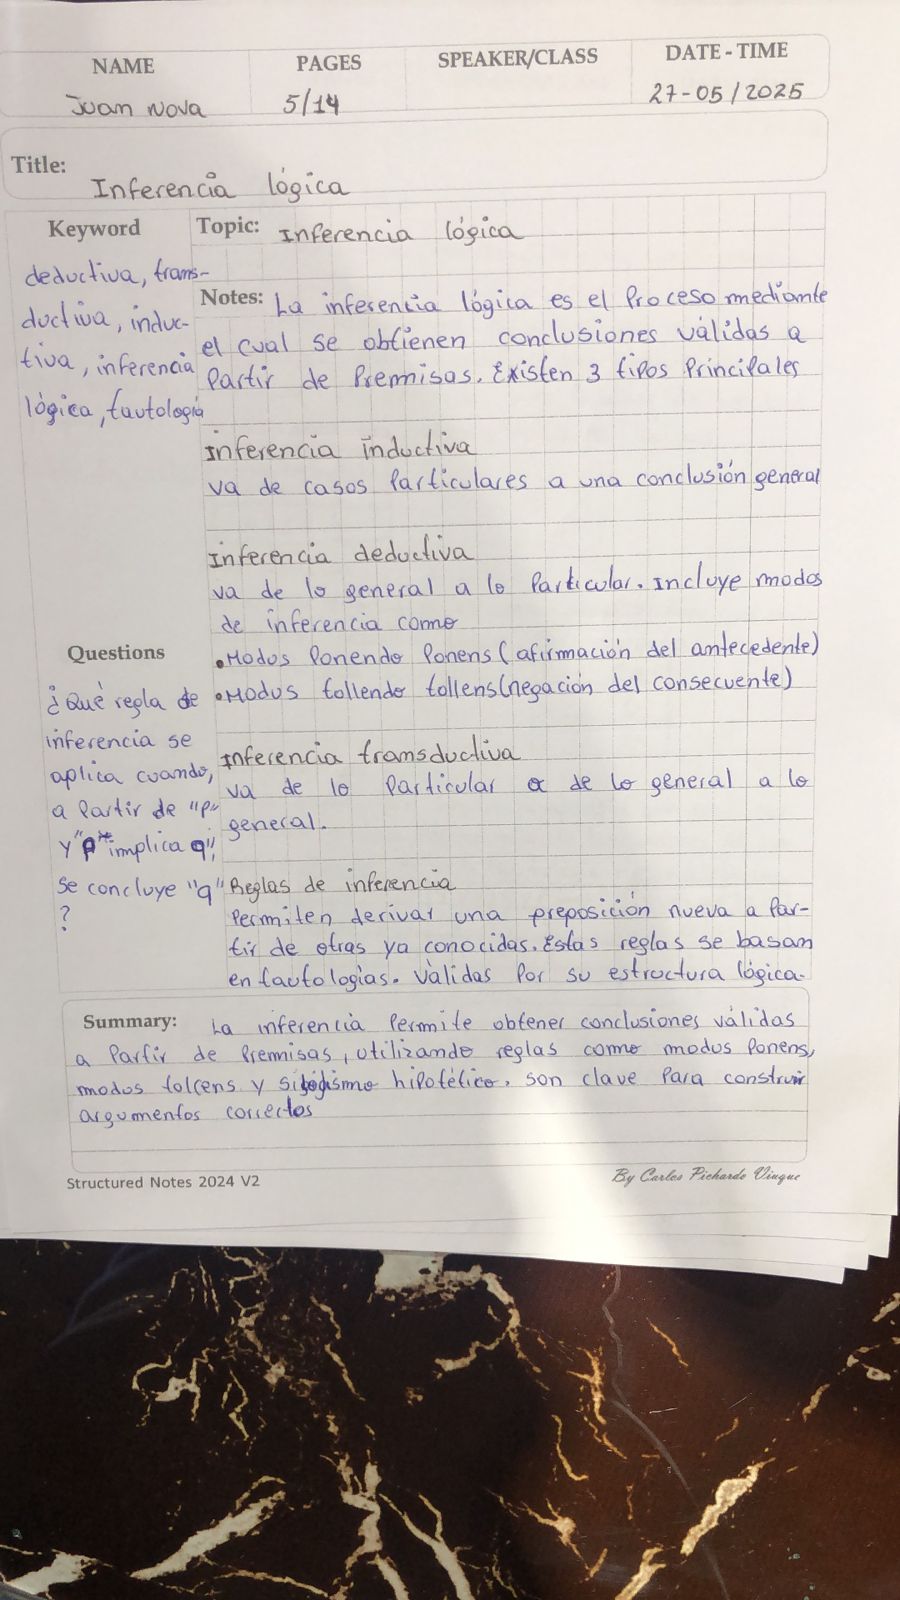 NAME PAGES SPEAKER/CLASS DATE - TIME
Juan Nova 5/14 27-05/2025
Title:
Inferencia lógica
Keyword
deductiva, trans-
ductiva, induc-
tiva, inferencia
lógica, tautología
Topic: Inferencia lógica
Notes: La inferencia lógica es el Proceso mediante
el cual se obtienen conclusiones válidas a
Partir de Premisas. Existen 3 tipos Principales
Inferencia inductiva
va de casos Particulares a una conclusión general
Inferencia deductiva
va de lo general a lo Particular. Incluye modos
de inferencia como
•Modus Ponendo Ponens (afirmación del antecedente)
•Modus tollendo tollens (negación del consecuente)
Inferencia transductiva
va de lo Particular a de lo general a lo
general.
Reglas de inferencia
Permiten derivar una preposición nueva a Par-
tir de otras ya conocidas. Estas reglas se basan
en tautologías. Válidas Por su estructura lógica.
Questions
¿Qué regla de
inferencia se
aplica cuando,
a Partir de "P"
y "P" implica q",
se concluye "q"
?
Summary: La inferencia Permite obtener conclusiones válidas
a Partir de Premisas, utilizando reglas como modus Ponens,
modus tolcens y silogismo hipotético. son clave Para construir
argumentos correctos
Structured Notes 2024 V2
By Carlos Pichardo Viuque